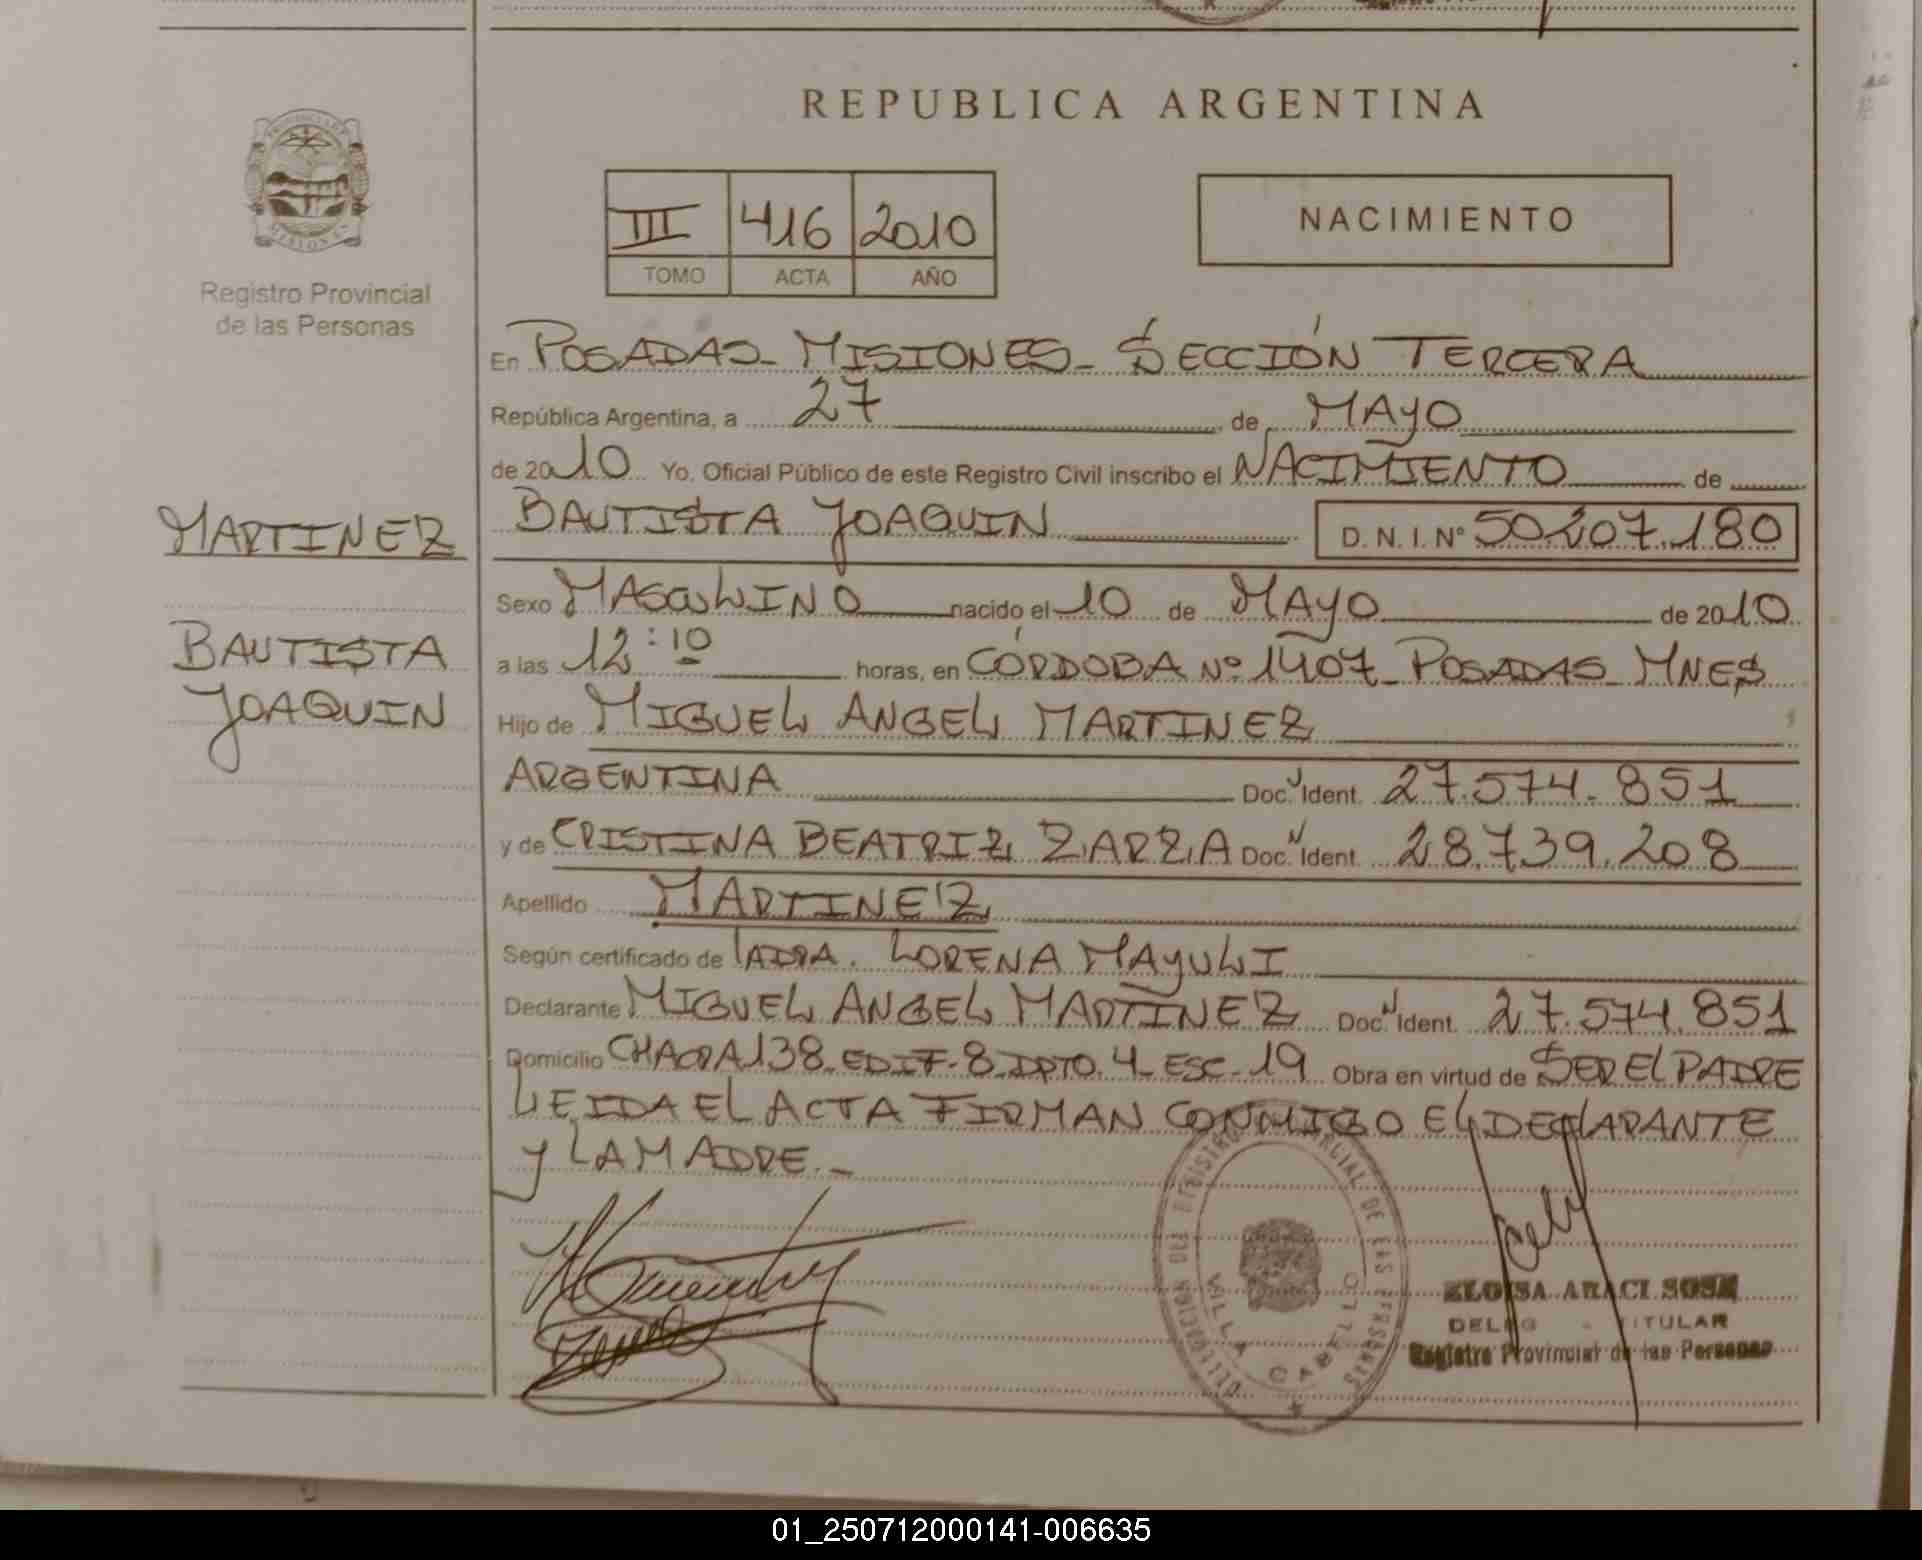 REPUBLICA ARGENTINA
III 416 2010
TOMO ACTA AÑO
NACIMIENTO
Registro Provincial
de las Personas
MARTINEZ
BAUTISTA
JOAQUIN
En POSADAS - MISIONES - SECCIÓN TERCERA
República Argentina, a 27 de MAYO
de 2010 Yo, Oficial Público de este Registro Civil inscribo el NACIMIENTO de
BAUTISTA JOAQUIN D.N.I. Nº 50.207.180
Sexo MASCULINO nacido el 10 de MAYO de 2010
a las 12:10 horas, en CÓRDOBA Nº 1407 - POSADAS - MNES
Hijo de MIGUEL ANGEL MARTINEZ
ARGENTINA Doc. Ident. 27.574.851
y de CRISTINA BEATRIZ ZARZA Doc. Ident. 28.739.208
Apellido MARTINEZ
Según certificado de LA DRA. LORENA MAYULI
Declarante MIGUEL ANGEL MARTINEZ Doc. Ident. 27.574.851
Domicilio CHACRA 138 - EDIF - 8 - DPTO. 4 - ESC - 19 Obra en virtud de SER EL PADRE
LEIDA EL ACTA FIRMAN CONMIGO EL DECLARANTE
Y LA MADRE. -
DELEGACION DEL REGISTRO PROVINCIAL DE LAS PERSONAS
VILLA CABELLO
ELOISA ARACI SOSA
TITULAR
Registro Provincial de las Personas
01_250712000141-006635